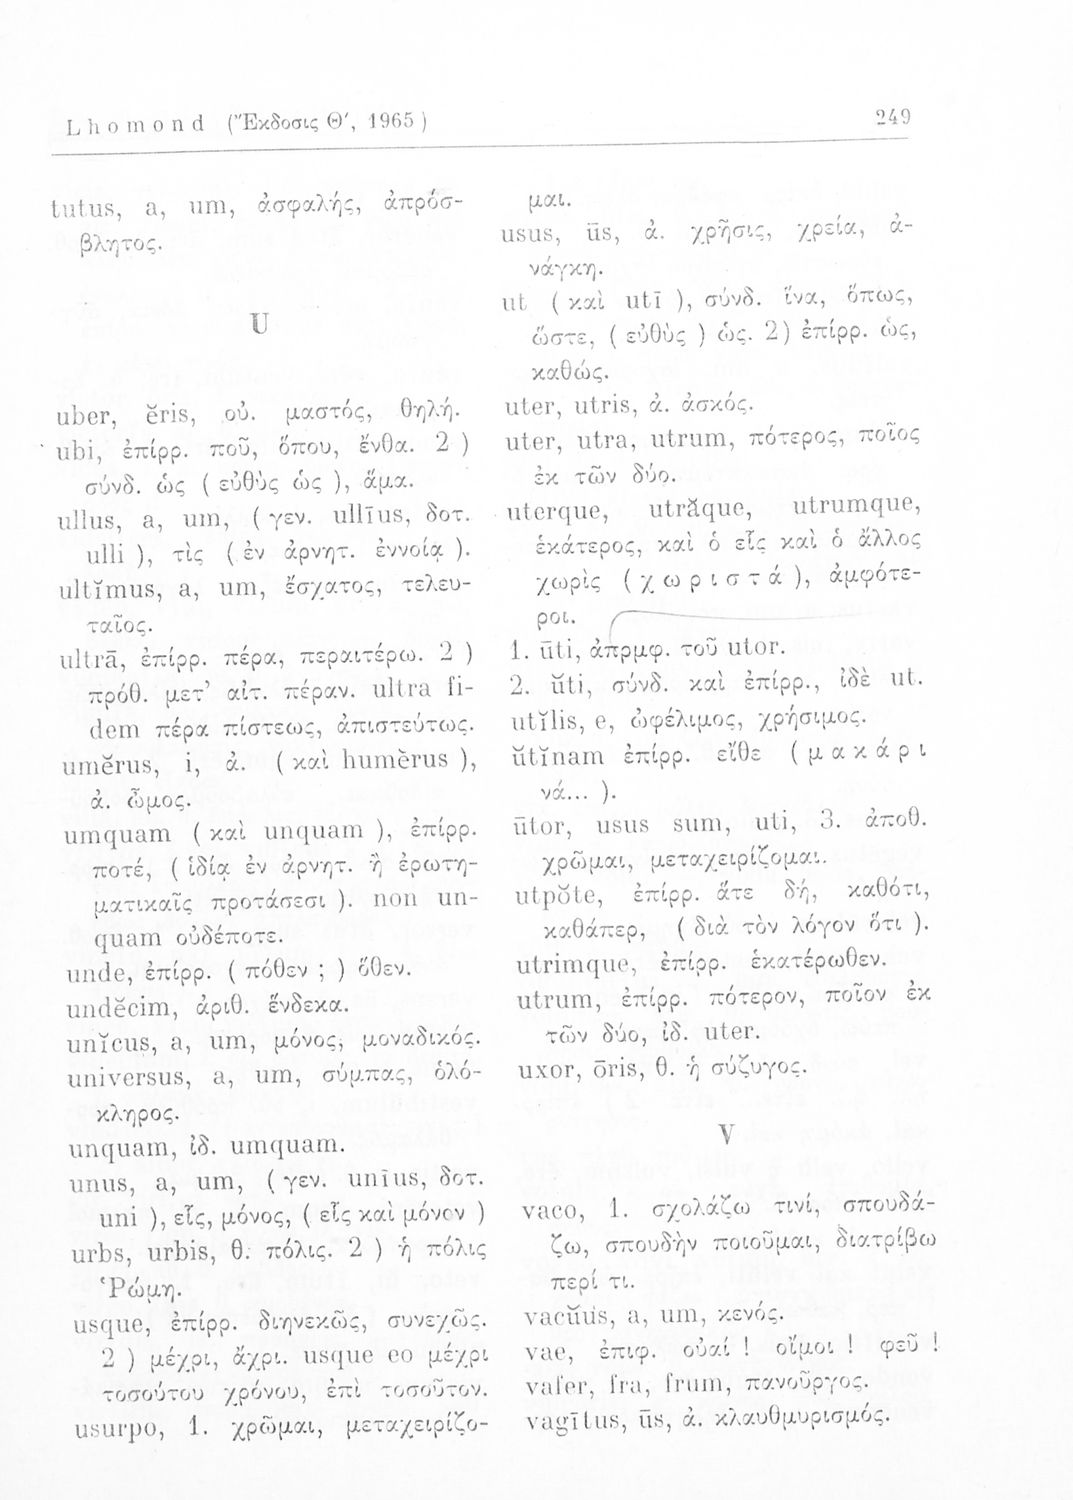 Lhomond (Ἔκδοσις Θ′, 1965)
249
tutus, a, um, ἀσφαλής, ἀπρόσ-
βλητος.
U
uber, ĕris, οὐ. μαστός, θηλή.
ubi, ἐπίρρ. ποῦ, ὅπου, ἔνθα. 2 )
σύνδ. ὡς ( εὐθὺς ὡς ), ἅμα.
ullus, a, um, ( γεν. ullīus, δοτ.
ulli ), τὶς ( ἐν ἀρνητ. ἐννοίᾳ ).
ultĭmus, a, um, ἔσχατος, τελευ-
ταῖος.
ultrā, ἐπίρρ. πέρα, περαιτέρω. 2 )
πρόθ. μετ’ αἰτ. πέραν. ultra fi-
dem πέρα πίστεως, ἀπιστεύτως.
umĕrus, i, ἀ. ( καὶ humĕrus ),
ἀ. ὦμος.
umquam ( καὶ unquam ), ἐπίρρ.
ποτέ, ( ἰδίᾳ ἐν ἀρνητ. ἢ ἐρωτη-
ματικαῖς προτάσεσι ). non un-
quam οὐδέποτε.
unde, ἐπίρρ. ( πόθεν ; ) ὅθεν.
undĕcim, ἀριθ. ἕνδεκα.
unĭcus, a, um, μόνος, μοναδικός.
universus, a, um, σύμπας, ὁλό-
κληρος.
unquam, ἰδ. umquam.
unus, a, um, ( γεν. unīus, δοτ.
uni ), εἷς, μόνος, ( εἷς καὶ μόνον )
urbs, urbis, θ. πόλις. 2 ) ἡ πόλις
Ῥώμη.
usque, ἐπίρρ. διηνεκῶς, συνεχῶς.
2 ) μέχρι, ἄχρι. usque eo μέχρι
τοσούτου χρόνου, ἐπὶ τοσοῦτον.
usurpo, 1. χρῶμαι, μεταχειρίζο-
μαι.
usus, ūs, ἀ. χρῆσις, χρεία, ἀ-
νάγκη.
ut ( καὶ utī ), σύνδ. ἵνα, ὅπως,
ὥστε, ( εὐθὺς ) ὡς. 2) ἐπίρρ. ὡς,
καθώς.
uter, utris, ἀ. ἀσκός.
uter, utra, utrum, πότερος, ποῖος
ἐκ τῶν δύο.
uterque, utrăque, utrumque,
ἑκάτερος, καὶ ὁ εἷς καὶ ὁ ἄλλος
χωρὶς ( χωριστά ), ἀμφότε-
ροι.
1. ūti, ἀπρμφ. τοῦ utor.
2. ŭti, σύνδ. καὶ ἐπίρρ., ἰδὲ ut.
utĭlis, e, ὠφέλιμος, χρήσιμος.
ŭtĭnam ἐπίρρ. εἴθε ( μακάρι
νά... ).
ūtor, usus sum, uti, 3. ἀποθ.
χρῶμαι, μεταχειρίζομαι.
utpŏte, ἐπίρρ. ἅτε δή, καθότι,
καθάπερ, ( διὰ τὸν λόγον ὅτι ).
utrimque, ἐπίρρ. ἑκατέρωθεν.
utrum, ἐπίρρ. πότερον, ποῖον ἐκ
τῶν δύο, ἰδ. uter.
uxor, ōris, θ. ἡ σύζυγος.
V
vaco, 1. σχολάζω τινί, σπουδά-
ζω, σπουδὴν ποιοῦμαι, διατρίβω
περί τι.
vacŭus, a, um, κενός.
vae, ἐπιφ. οὐαί ! οἴμοι ! φεῦ !
vafer, fra, frum, πανοῦργος.
vagītus, ūs, ἀ. κλαυθμυρισμός.